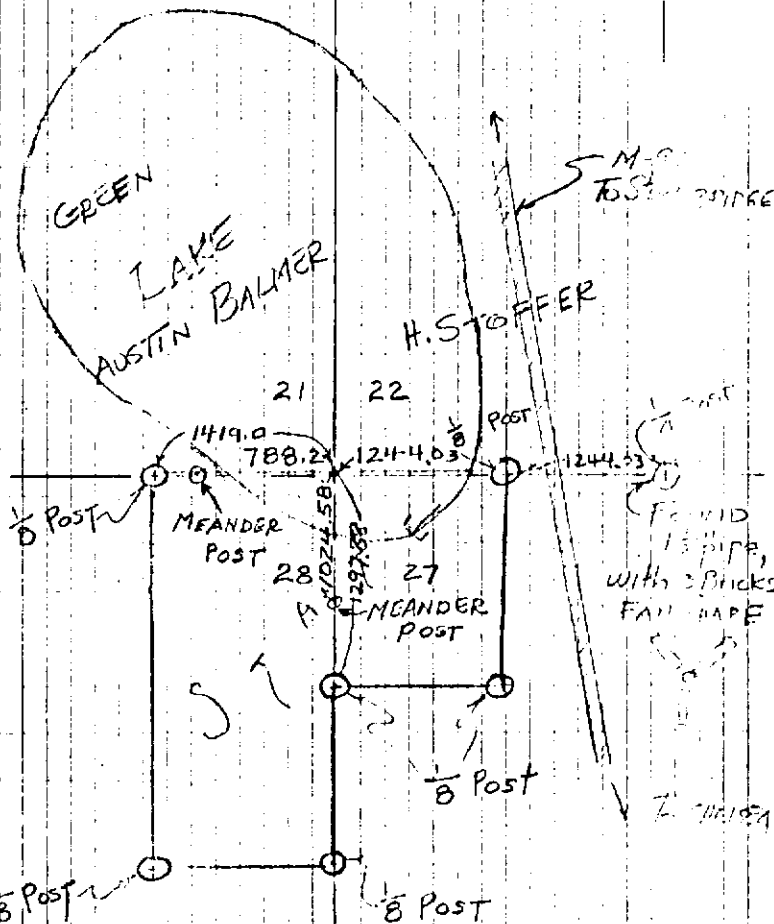 GREEN
LAKE
AUSTIN BALMER
H. STOFFER
21
22
1/8 POST
1419.0
788.2
1244.03
1244.03
1/8 POST
MEANDER
POST
1024.58
1297.
28
27
MEANDER
POST
FOUND
pipe,
with 3 Bricks
1/8 Post
1/8 POST
1/8 POST